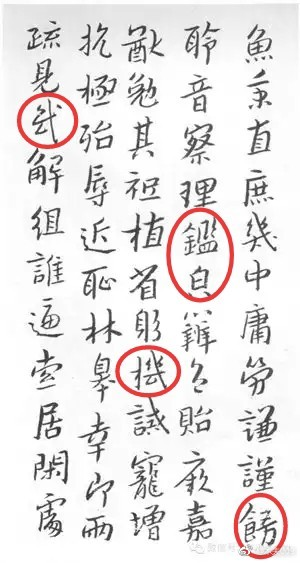 魚秉直庶幾中庸勞謙謹
聆音察理鑑皃辯色貽厥嘉
猷勉其祗植省躬機誡寵增
抗極殆辱近恥林皋幸即兩
疏見解組誰逼索居閑處